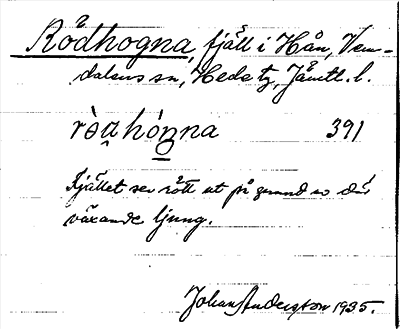 Rödhogna, fjäll i Hån, Vem-
dalens sn, Hede tg, Jämtl. l.
391
Fjället ser rött ut på grund av där
växande ljung.
Johan Anderson 1935.